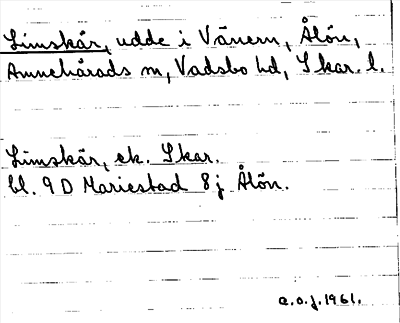 Limskär, udde i Vänern, Ålön,
Annehårads sn, Vadsbo hd, Skar. l.
Limskär, ek. Skar.
bl. 9 D Mariestad 8 j Ålön.
a.o.j. 1961.